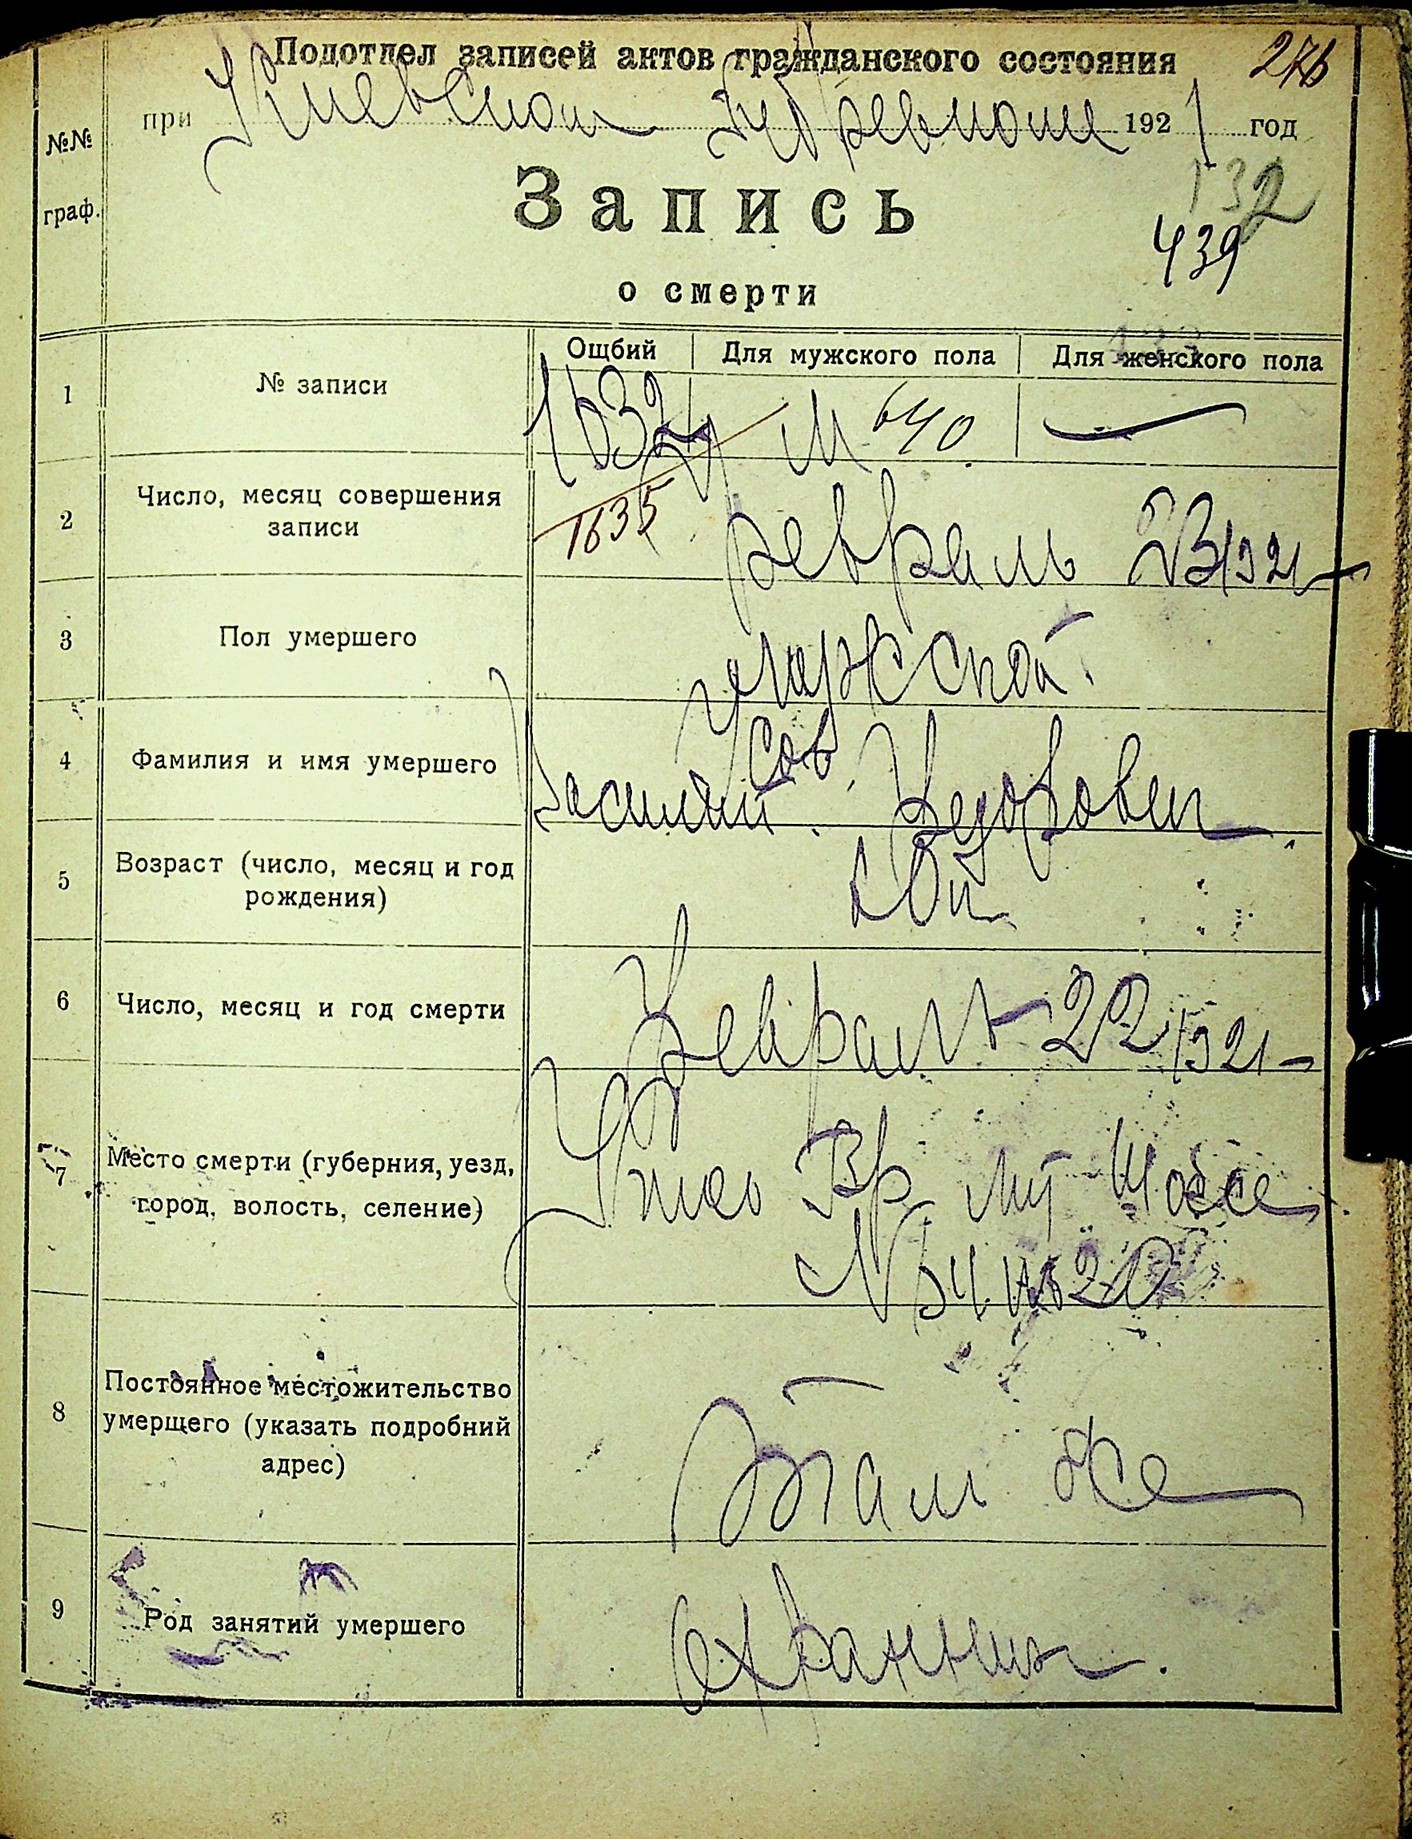 Подотдел записей актов гражданского состояния 276
при Киевском Губревкоме 1921 год
№№ граф.
132
Запись
439
о смерти
Ощбий Для мужского пола Для женского пола
1 № записи 1632 М 640 —
1635
2 Число, месяц совершения записи февраль 23/921
3 Пол умершего Мужской
4 Фамилия и имя умершего
Василий Федорович
5 Возраст (число, месяц и год рождения)
6 Число, месяц и год смерти Февраль 22/921
7 Место смерти (губерния, уезд, город, волость, селение) Шоссе
8 Постоянное местожительство умерщего (указать подробний адрес) Там же
9 Род занятий умершего